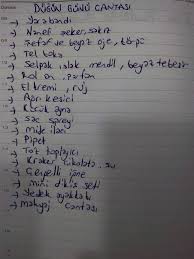 DÜĞÜN GÜNÜ ÇANTASI
→ Yarabandı
→ Nane şeker, sakız
→ Şeffaf ve beyaz oje, törpü
→ Tel toka
→ Selpak ıslak mendil, beyaz tebeşir
→ Rol on, parfüm
→ El kremi, ruj
→ Ağrı kesici
→ Küçük ayna
→ Saç spreyi
→ Mide ilacı
→ Pipet
→ Toz toplayıcı
→ Kraker çikolata, su
→ Çengelli iğne
→ mini dikiş seti
→ Yedek ayakkabı
→ makyaj çantası